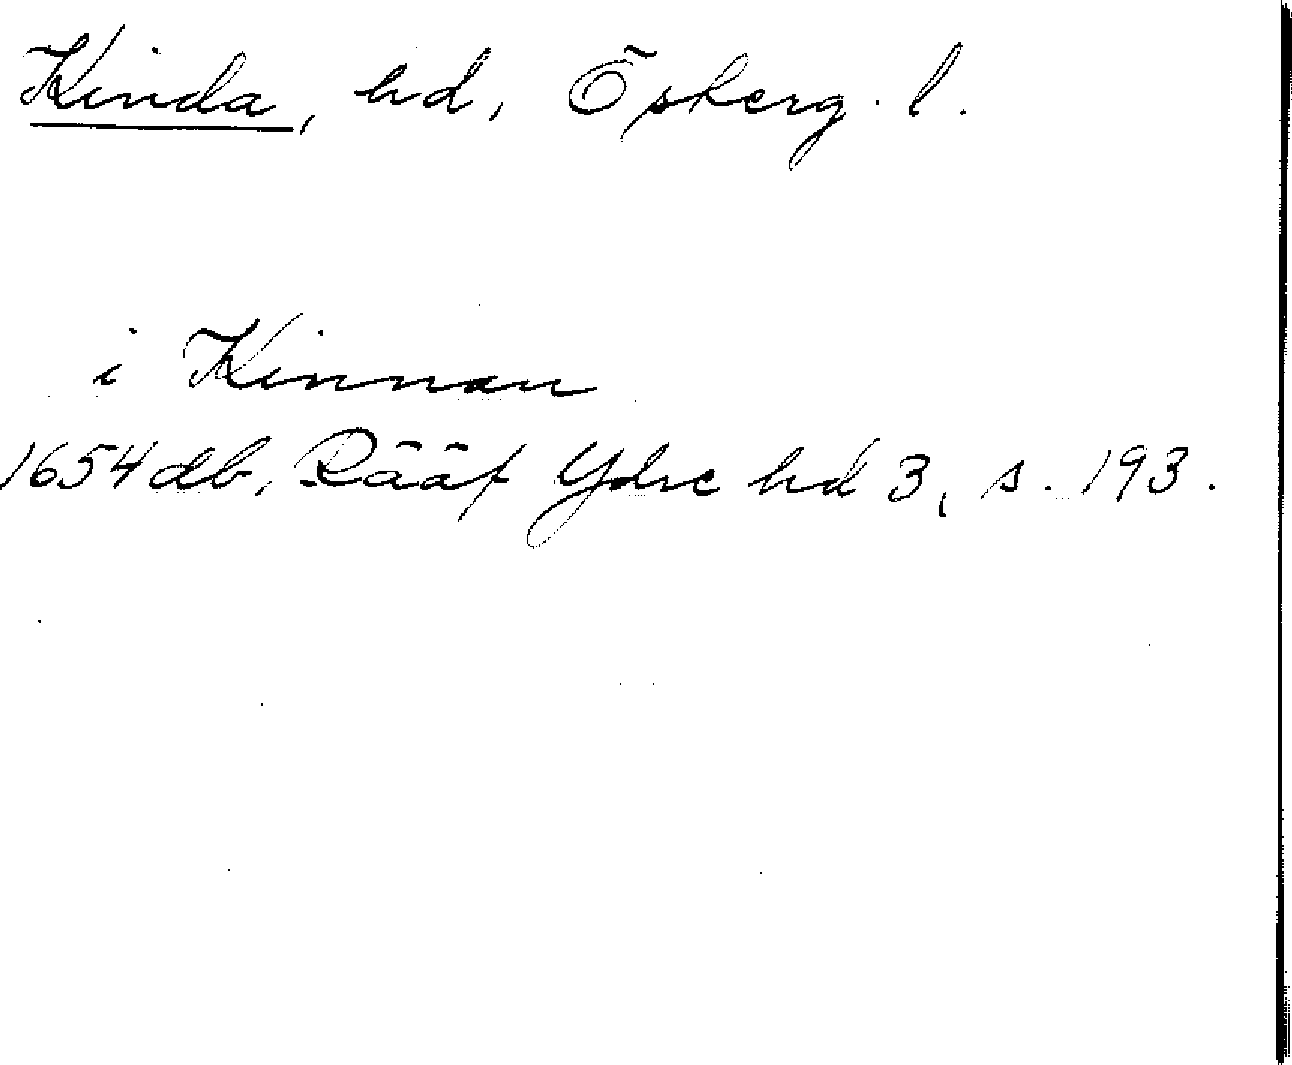 Kinda, hd, Öskerg. l.
i Kinnan
1654 db, Rääf Ydre hd 3, s. 193.